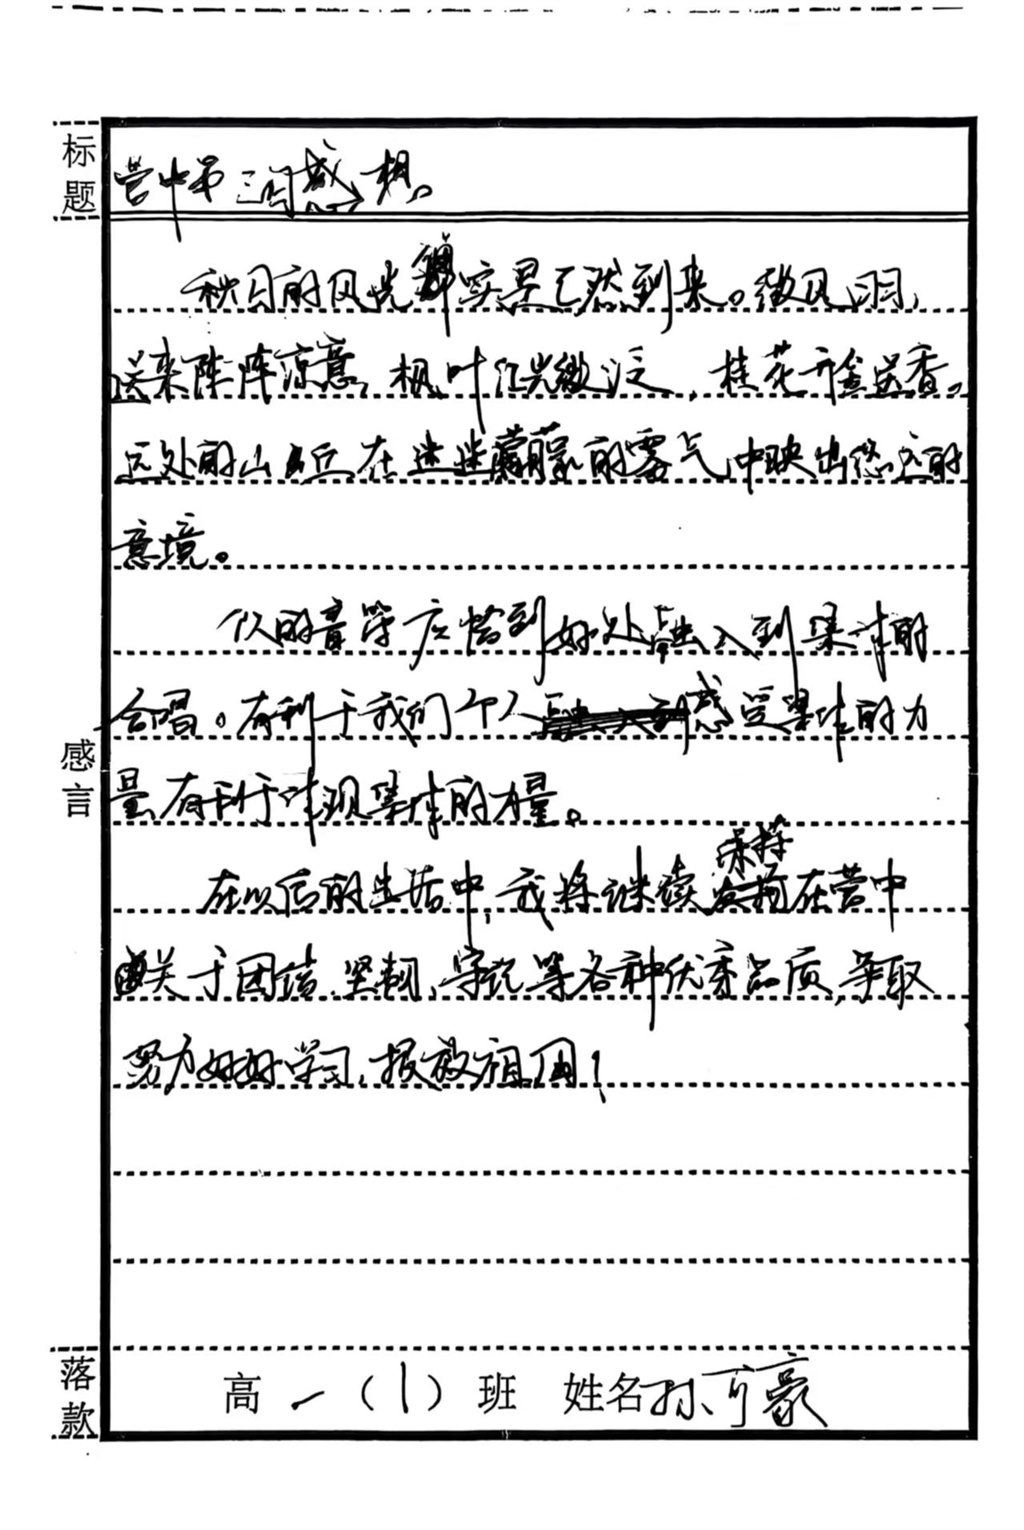 标题
营中第三日感想。
秋日的风光确实是已然到来。微风日日,
送来阵阵凉意,枫叶红光微泛,桂花开盒送香。
远处的山丘在迷迷朦朦的雾气中映出悠远的
意境。
们的音符应恰到好处融入到集体的
合唱。有利于我们个人感受集体的力
量有利于体现集体的力量。
感言
在以后的生活中,我将继续保持在营中
关于团结、坚韧、守纪等各种优秀品质,争取
努力好好学习,报效祖国!
落款
高一(1)班 姓名孙可豪